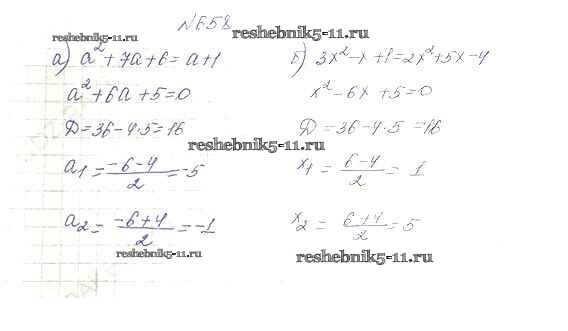 №658
reshebnik5-11.ru
reshebnik5-11.ru
а) a² + 7a + 6 = a + 1
a² + 6a + 5 = 0
Д = 36 - 4·5 = 16
a₁ = (-6-4)/2 = -5
a₂ = (-6+4)/2 = -1
б) 3x² - x + 1 = 2x² + 5x - 4
x² - 6x + 5 = 0
Д = 36 - 4·5 = 16
x₁ = (6-4)/2 = 1
x₂ = (6+4)/2 = 5
reshebnik5-11.ru
reshebnik5-11.ru
reshebnik5-11.ru